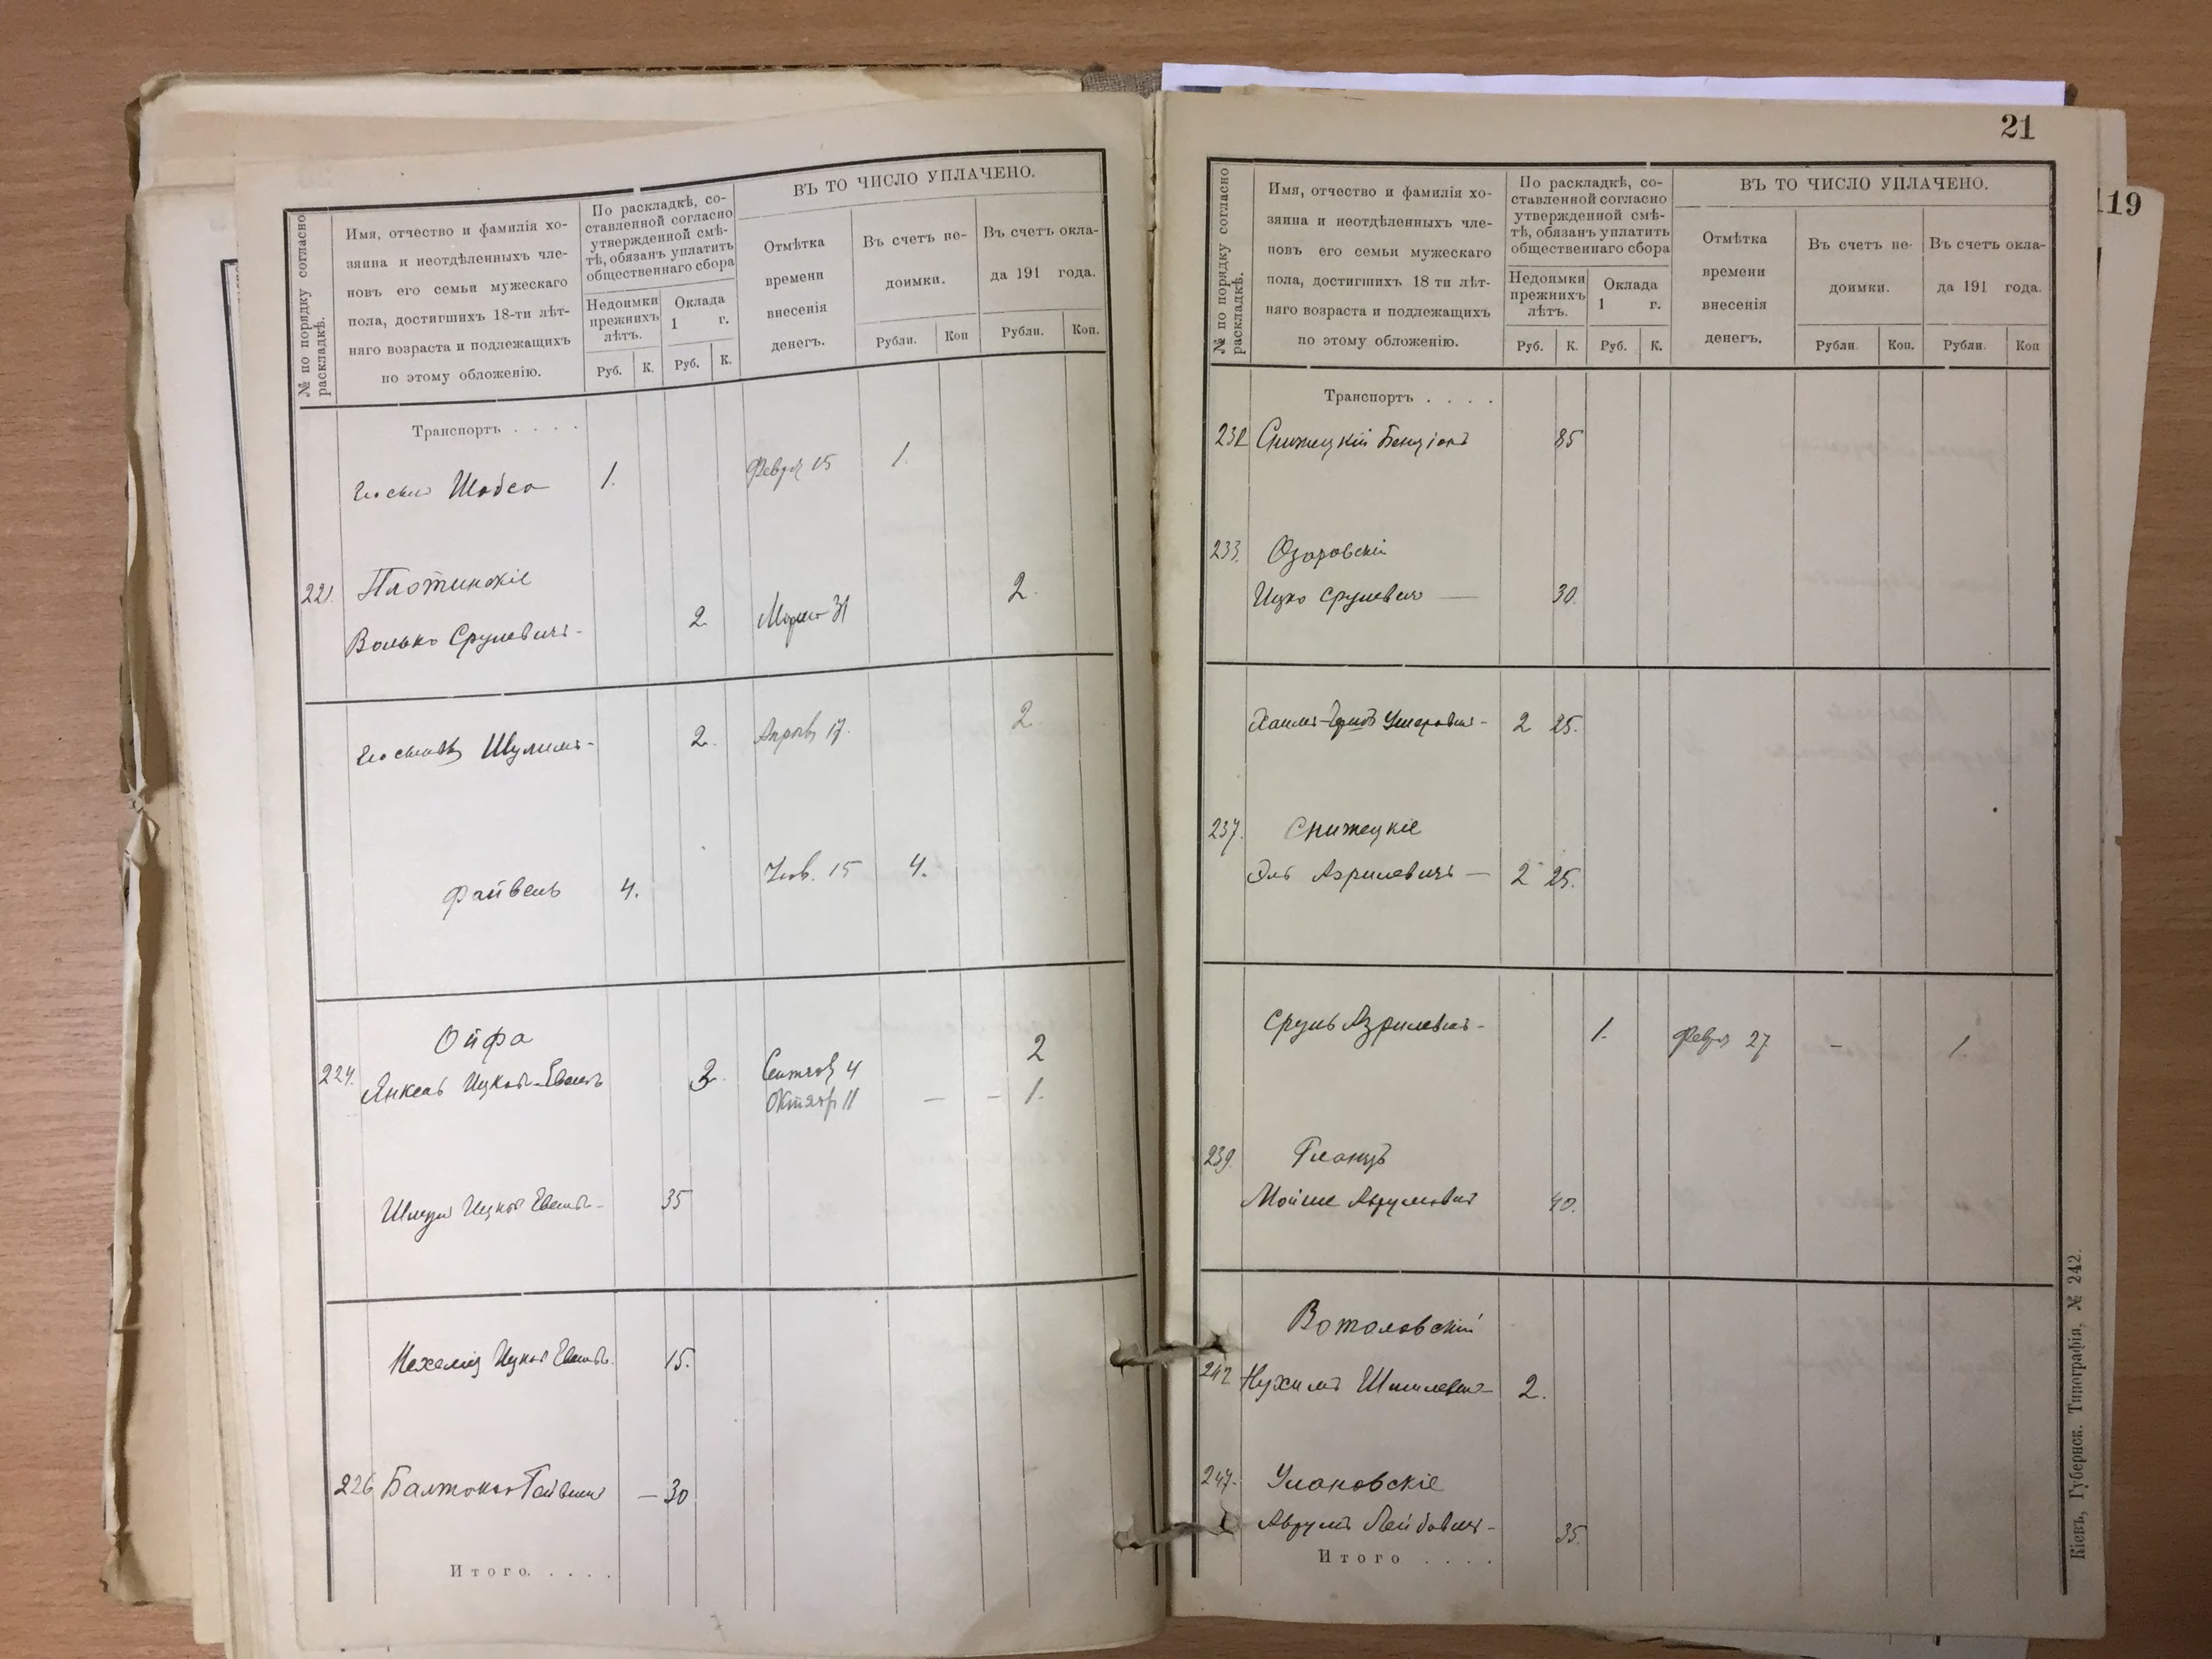 № по порядку согласно раскладкѣ.
Имя, отчество и фамилія хо-
зяина и неотдѣленныхъ чле-
новъ его семьи мужескаго
пола, достигшихъ 18-ти лѣт-
няго возраста и подлежащихъ
по этому обложенію.
По раскладкѣ, со-
ставленной согласно
утвержденной смѣ-
тѣ, обязанъ уплатить
общественнаго сбора
Недоимки
прежнихъ
лѣтъ.
Оклада
1 г.
Руб. К. Руб. К.
ВЪ ТО ЧИСЛО УПЛАЧЕНО.
Отмѣтка
времени
внесенія
денегъ.
Въ счетъ не-
доимки.
Въ счетъ окла-
да 191 года.
Рубли. Коп Рубли. Коп.
Транспортъ . . . .
1. 15 1.
221. Плотинскіе
Волько Сруневичъ 2. 31 2.
Шулимъ 2. 17. 2.
Файвель 4. 15 4.
Ойфа
224. Янкель 3. 4 2
11 — — 1.
35
15.
226 — 30
Итого. . . . .
21
№ по порядку согласно раскладкѣ.
Имя, отчество и фамилія хо-
зяина и неотдѣленныхъ чле-
новъ его семьи мужескаго
пола, достигшихъ 18 ти лѣт-
няго возраста и подлежащихъ
по этому обложенію.
По раскладкѣ, со-
ставленной согласно
утвержденной смѣ-
тѣ, обязанъ уплатить
общественнаго сбора
Недоимки
прежнихъ
лѣтъ.
Оклада
1 г.
Руб. К. Руб. К.
ВЪ ТО ЧИСЛО УПЛАЧЕНО.
Отмѣтка
времени
внесенія
денегъ.
Въ счетъ не-
доимки.
Въ счетъ окла-
да 191 года.
Рубли. Коп. Рубли. Коп
Транспортъ . . . .
Снижецкій Бенціонъ 85
233. Озаровскій
Ицко Срулевичъ — 30.
2 25.
237. Снижецкіе
Эль Азрилевичъ — 2 25.
Сруль Азрилевичъ 1. 27 – 1.
239. Гланцъ
Мойше Аврумовичъ 40.
Вотоловскій
242 Нухимъ Шмилевичъ 2.
247. Улановскіе
Аврумъ Лейбовичъ 35.
Итого . . . .
Кіевъ, Губернск. Типографія, № 242.
19